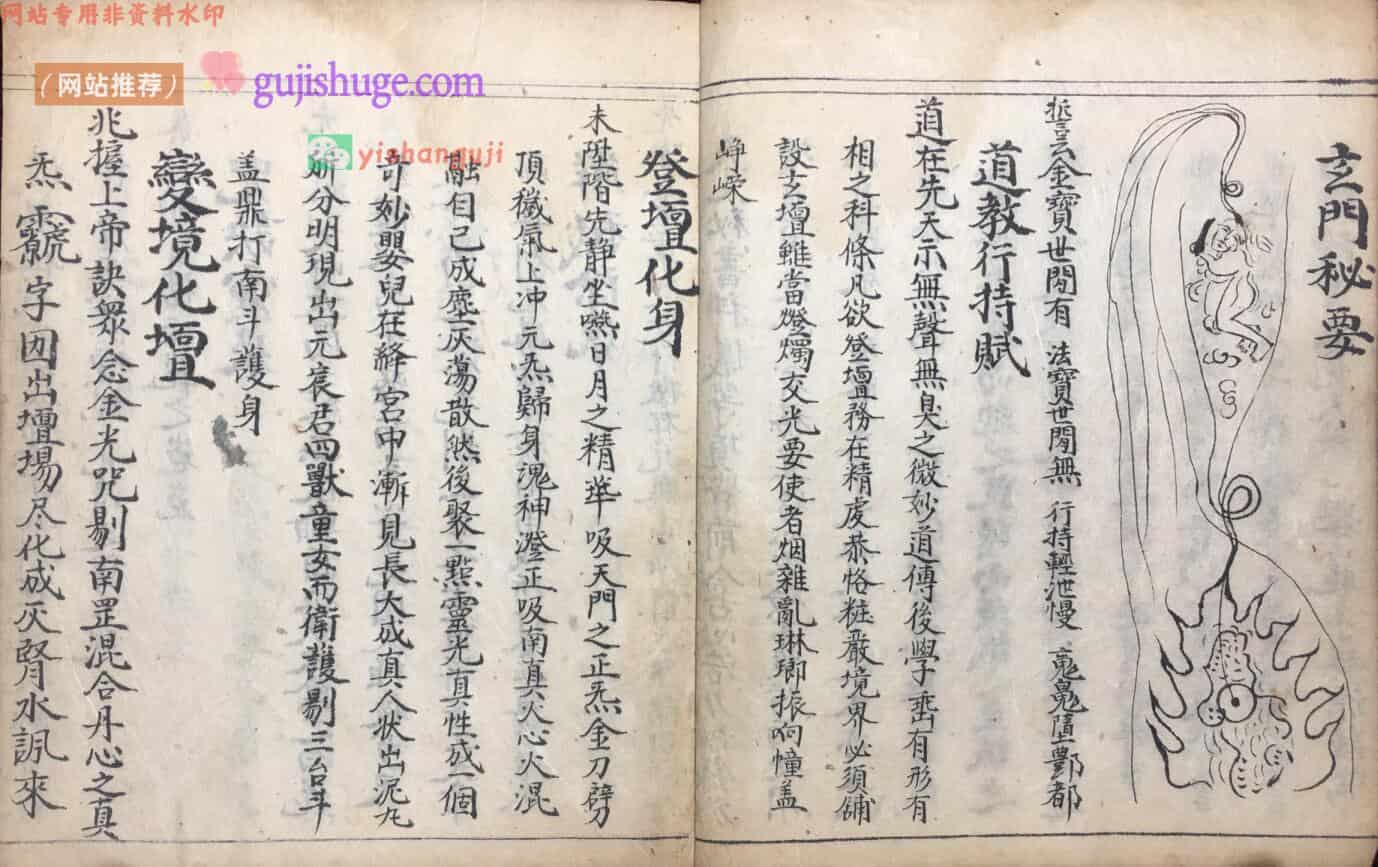 网站专用非资料水印
（网站推荐）
gujishuge.com
yishanguji
玄門秘要
誓云金寶世間有 法寶世間無 行持輕泄慢 魂鬼墮酆都
道教行持賦
道在先天示無聲無臭之微妙道傳後學垂有形有
相之科條凡欲登壇務在精虔恭恪粧嚴境界必須鋪
設玄壇雖當燈燭交光要使者烟雜亂琳瑯振响幢盖
崢嶸
登壇化身
未陞階先静坐嚥日月之精華吸天門之正炁金刀劈
頂穢氣上冲元炁歸身魂神澄正吸南真火心火混
融自己成塵灰蕩散然後聚一點靈光真性成一個
奇妙嬰兒在絳宮中漸見長大成真人狀出泥丸
分明現出元辰君四獸童女而衛護剔三台斗
盖鼎打南斗護身
變境化壇
兆握上帝訣衆念金光咒剔南罡混合丹心之真
炁 字因出壇場尽化成灰腎水訊來